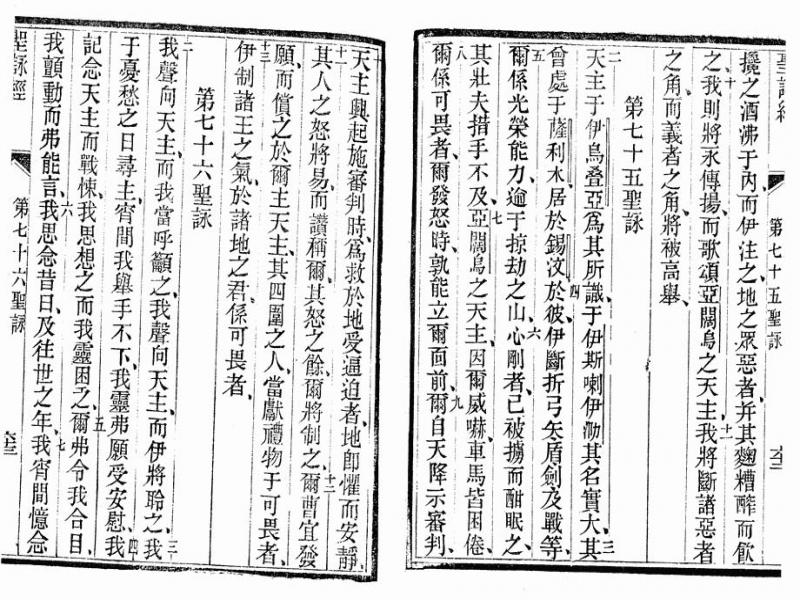 聖詠經
第七十五聖詠
六三
攙之酒沸于內、而伊注之地之眾惡者、并其麴糟醡而飲
之、十我則將永傳揚、而歌頌亞闊烏之天主、十一我將斷諸惡者
之角、而義者之角、將被高舉、
第七十五聖詠
二天主于伊烏叠亞爲其所識、于伊斯喇伊泐其名實大、三其
曾處于薩利木、居於錫汶、四於彼伊斷折弓矢盾劍及戰等、
五爾係光榮能力、逾于掠劫之山、六心剛者、已被擄而酣眠之、
其壯夫措手不及、七亞闊烏之天主、因爾威嚇、車馬皆困倦、
八爾係可畏者、爾發怒時、孰能立爾面前、九爾自天降示審判、
十天主興起施審判時、爲救於地受逼迫者、地即懼而安靜、
十一其人之怒將易而讚稱爾、其怒之餘、爾將制之、十二爾曹宜發
願、而償之於爾主天主、其四圍之人、當獻禮物于可畏者、
十三伊制諸王之氣、於諸地之君、係可畏者、
第七十六聖詠
二我聲向天主、而我當呼籲之、我聲向天主、而伊將聆之、三我
于憂愁之日尋主、宵間我舉手不下、我靈弗願受安慰、四我
記念天主而戰悚、我思想之而我靈困之、五爾弗令我合目、
我顫動而弗能言、六我思念昔日、及往世之年、七我宵間憶念
聖詠經
第七十六聖詠
六三